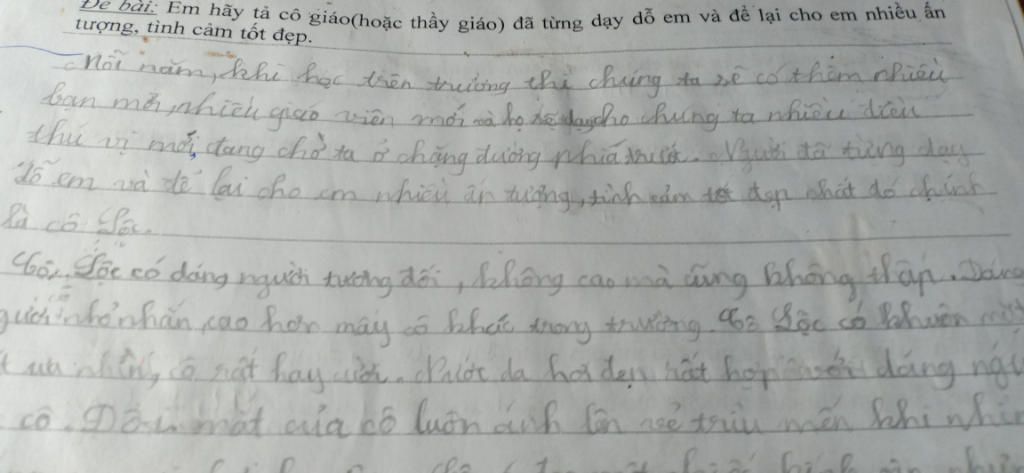 Đề bài: Em hãy tả cô giáo(hoặc thầy giáo) đã từng dạy dỗ em và để lại cho em nhiều ấn
tượng, tình cảm tốt đẹp.
Mỗi năm, khi học trên trường thì chúng ta sẽ có thêm nhiều
bạn mới, nhiều giáo viên mới và họ sẽ dạy cho chúng ta nhiều điều
thú vị mới, đang chờ ta ở chặng đường phía trước. Người đã từng dạy
dỗ em và để lại cho em nhiều ấn tượng, tình cảm tốt đẹp nhất đó chính
là cô Lộc.
Cô Lộc có dáng người tương đối, không cao mà cũng không thấp. Dáng
người nhỏ nhắn, cao hơn mấy cô khác trong trường. Cô Lộc có khuôn mặt
ưa nhìn, cô rất hay cười. Nước da hơi đen rất hợp với dáng
cô. Đôi mắt của cô luôn ánh lên vẻ trìu mến khi nhìn